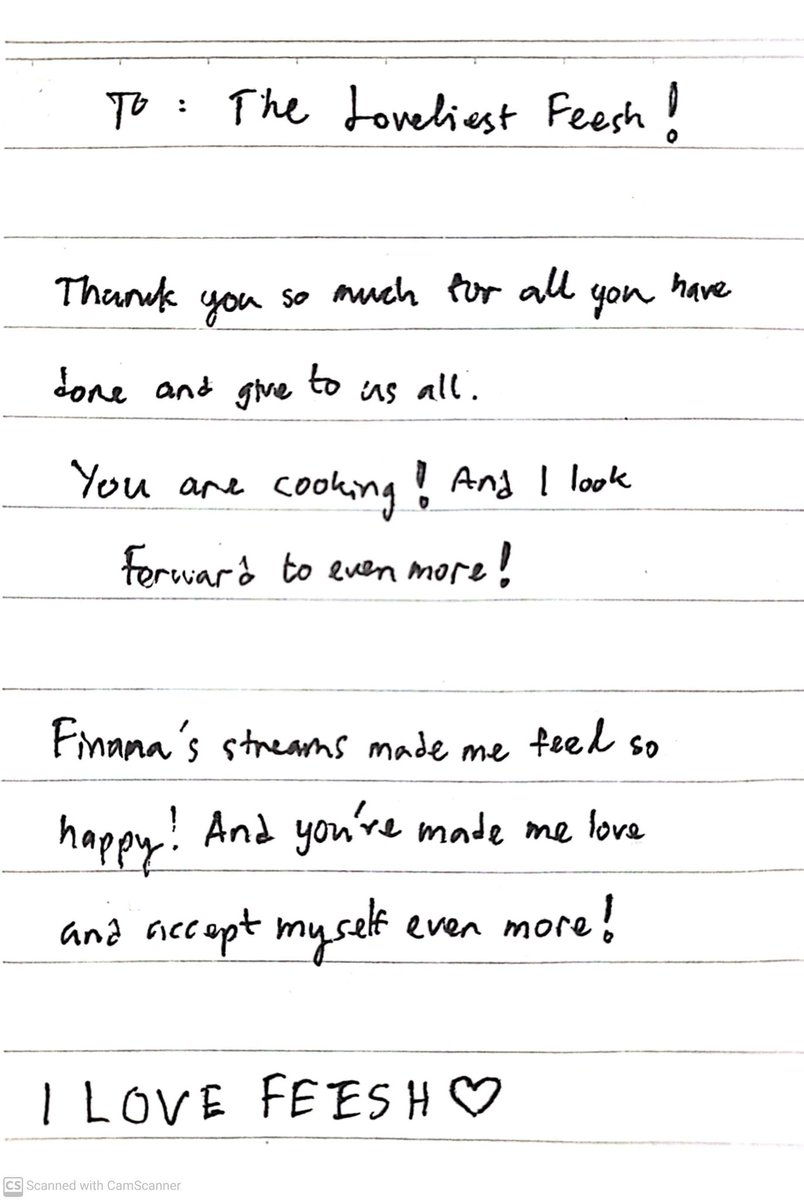 To : The Loveliest Feesh!
Thank you so much for all you have
done and give to us all.
You are cooking! And I look
Forward to even more!
Finana's streams made me feel so
happy! And you're made me love
and accept myself even more!
I LOVE FEESH♡
CS Scanned with CamScanner